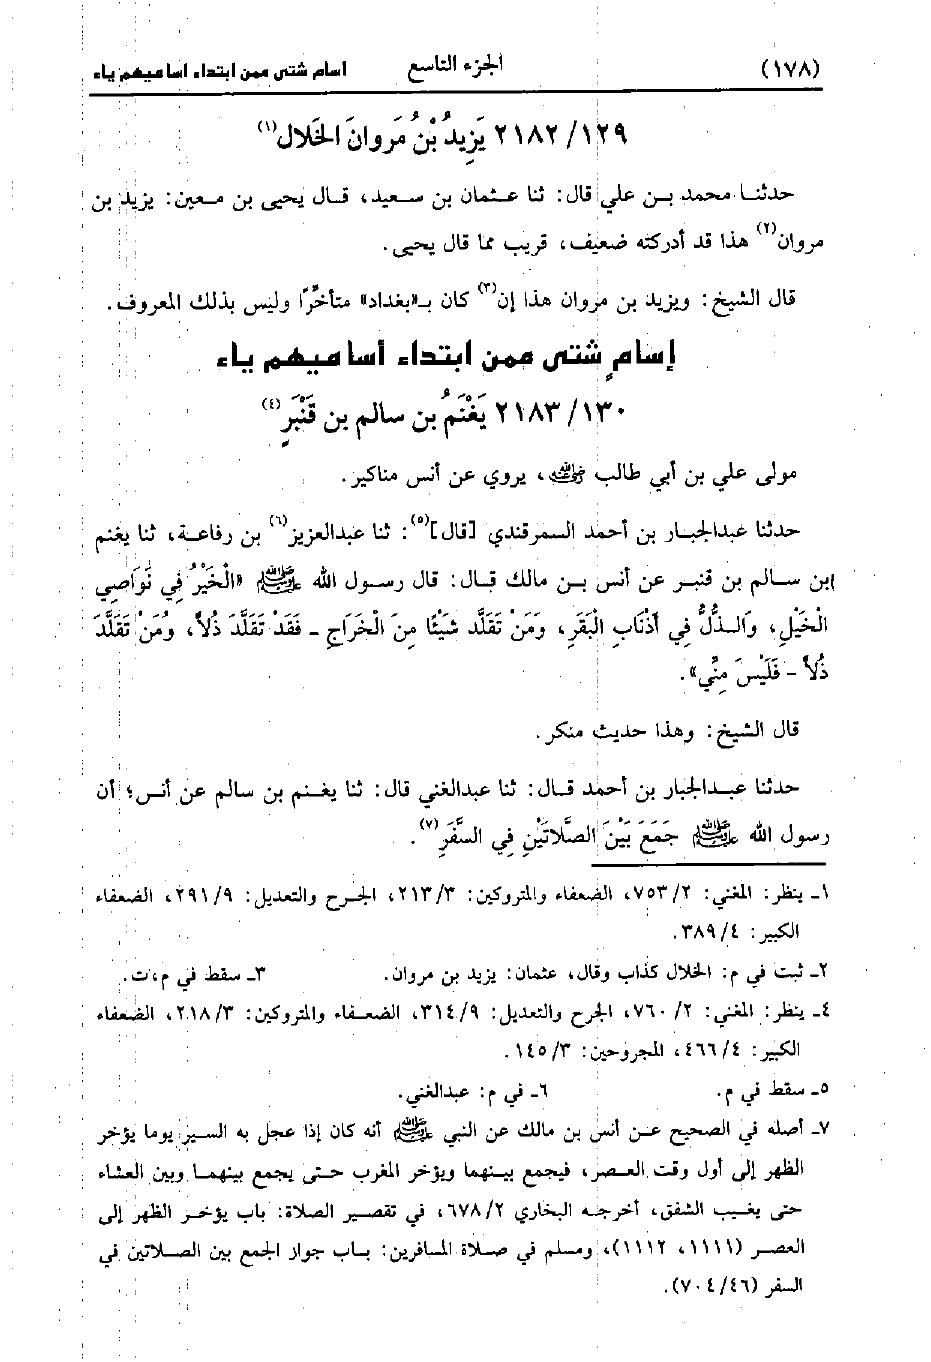 (١٧٨) الجزء التاسع اسام شتى ممن ابتداء اساميهم ياء
٢١٨٢/١٢٩ يَزِيدُ بْنُ مَروانَ الخَلال(١)
حدثنا محمد بن علي قال: ثنا عثمان بن سعيد، قال يحيى بن معين: يزيد بن
مروان(٢) هذا قد أدركته ضعيف، قريب مما قال يحيى.
قال الشيخ: ويزيد بن مروان هذا إن(٣) كان بـ«بغداد» متأخِّرًا وليس بذلك المعروف.
إسامٍ شتى ممن ابتداء أساميهم ياء
٢١٨٣/١٣٠ يَغْنَمُ بن سالم بن قَنْبَرٍ(٤)
مولى علي بن أبي طالب ﷺ، يروي عن أنس مناكير.
حدثنا عبدالجبار بن أحمد السمرقندي [قال](٥): ثنا عبدالعزيز(٦) بن رفاعة، ثنا يغنم
ابن سالم بن قنبر عن أنس بن مالك قال: قال رسول الله ﷺ «الْخَيْرُ فِي نَوَاصِي
الْخَيْلِ، وَالذُّلُّ فِي أَذْنَابِ الْبَقَرِ، وَمَنْ تَقَلَّد شَيْئًا مِنَ الْخَرَاجِ - فَقَدْ تَقَلَّدَ ذُلاً، وَمَنْ تَقَلَّدَ
ذُلاً - فَلَيْسَ مِنِّي».
قال الشيخ: وهذا حديث منكر.
حدثنا عبدالجبار بن أحمد قال: ثنا عبدالغني قال: ثنا يغنم بن سالم عن أنس؛ أن
رسول الله ﷺ جَمَعَ بَيْنَ الصَّلاَتَيْنِ فِي السَّفَرِ(٧).
١ـ ينظر: المغني: ٧٥٣/٢، الضعفاء والمتروكين: ٢١٣/٣، الجرح والتعديل: ٢٩١/٩، الضعفاء
الكبير: ٣٨٩/٤.
٢ـ ثبت في م: الخلال كذاب وقال، عثمان: يزيد بن مروان. ٣ـ سقط في م،ت.
٤ـ ينظر: المغني: ٧٦٠/٢، الجرح والتعديل: ٣١٤/٩، الضعفاء والمتروكين: ٢١٨/٣، الضعفاء
الكبير: ٤٦٦/٤، المجروحين: ١٤٥/٣.
٥ـ سقط في م. ٦ـ في م: عبدالغني.
٧ـ أصله في الصحيح عن أنس بن مالك عن النبي ﷺ أنه كان إذا عجل به السير يوما يؤخر
الظهر إلى أول وقت العصر، فيجمع بينهما ويؤخر المغرب حتى يجمع بينهما وبين العشاء
حتى يغيب الشفق، أخرجه البخاري ٦٧٨/٢، في تقصير الصلاة: باب يؤخر الظهر إلى
العصر (١١١١، ١١١٢)، ومسلم في صلاة المسافرين: باب جواز الجمع بين الصلاتين في
السفر (٧٠٤/٤٦).